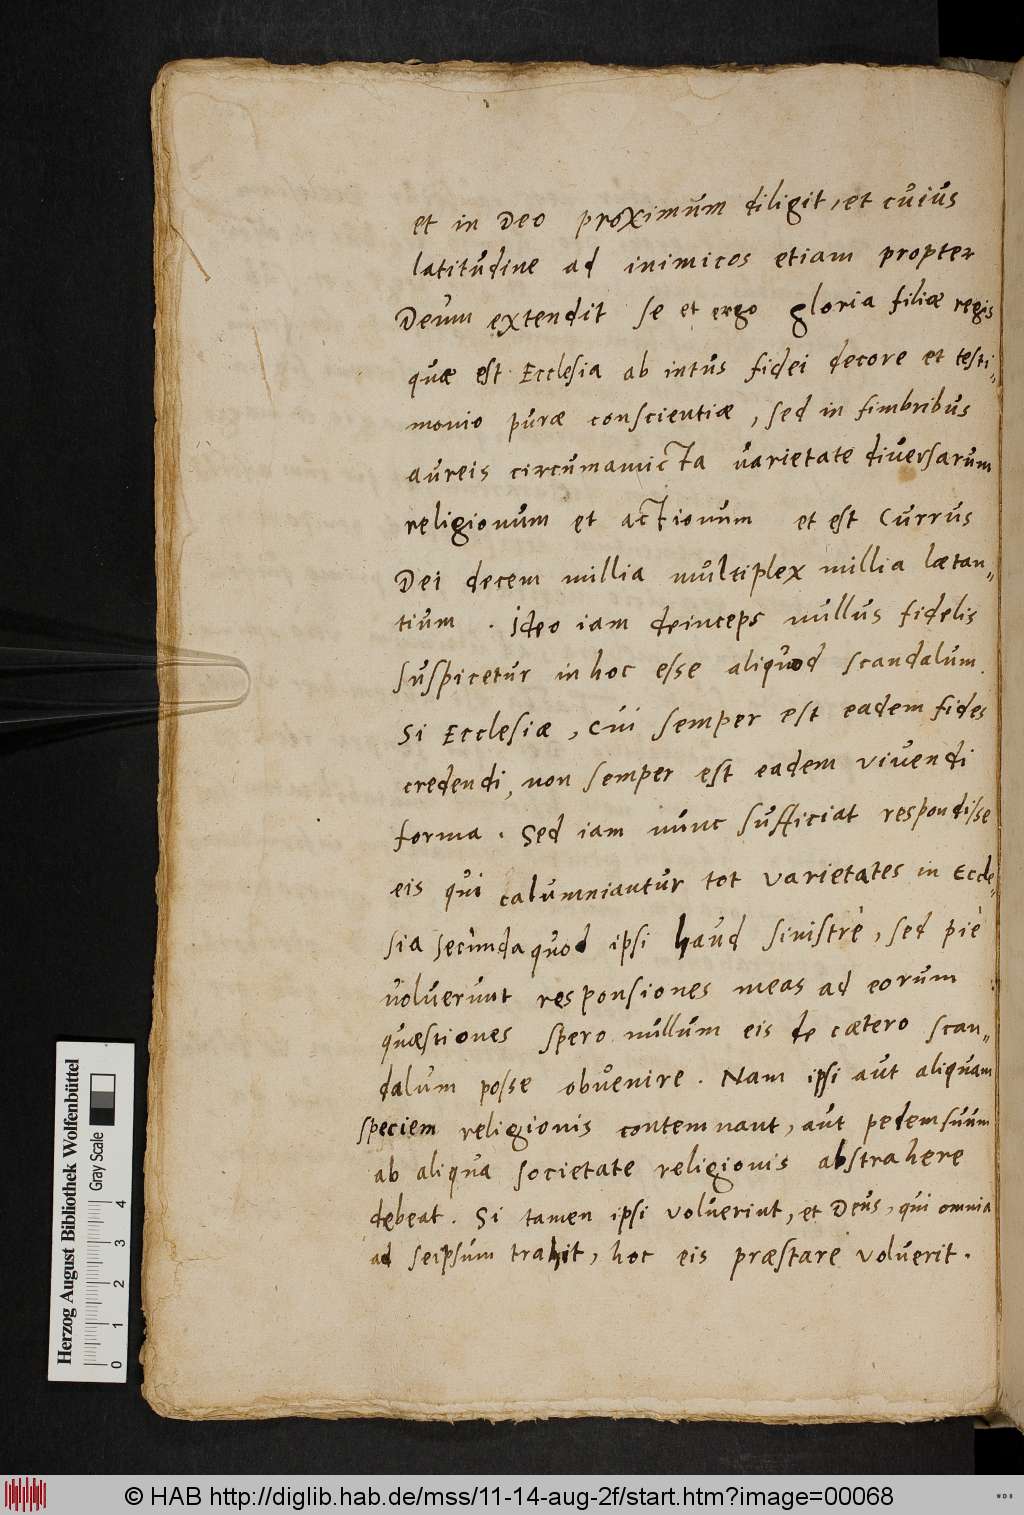 et in Deo proximum diligit, et cuius
latitudine ad inimicos etiam propter
Deum extendit se et ergo gloria filiæ regis
quæ est Ecclesia ab intus fidei decore et testi„
monio puræ conscientiæ, sed in fimbribus
aureis circumamicta varietate diversarum
religionum et actionum et est Currus
Dei decem millia multiplex millia lætan„
tium. Ideo iam deinceps nullus fidelis
suspicetur in hoc esse aliquod scandalum.
Si Ecclesiæ, cui semper est eadem fides
credendi, non semper est eadem vivendi
forma. Sed iam nunc sufficiat respondisse
eis qui calumniantur tot varietates in Eccle„
sia secunda quod ipsi haud sinistrè, sed piè
voluerunt responsiones meas ad eorum
quæstiones spero nullum eis de cætero scan„
dalum posse obvenire. Nam ipsi aut aliquam
speciem religionis contemnant, aut pedem suum
ab aliqua societate religionis abstrahere
debeat. Si tamen ipsi voluerint, et Deus, qui omnia
ad seipsum trahit, hoc eis præstare voluerit.
Herzog August Bibliothek Wolfenbüttel
Gray Scale
0 1 2 3 4
© HAB http://diglib.hab.de/mss/11-14-aug-2f/start.htm?image=00068